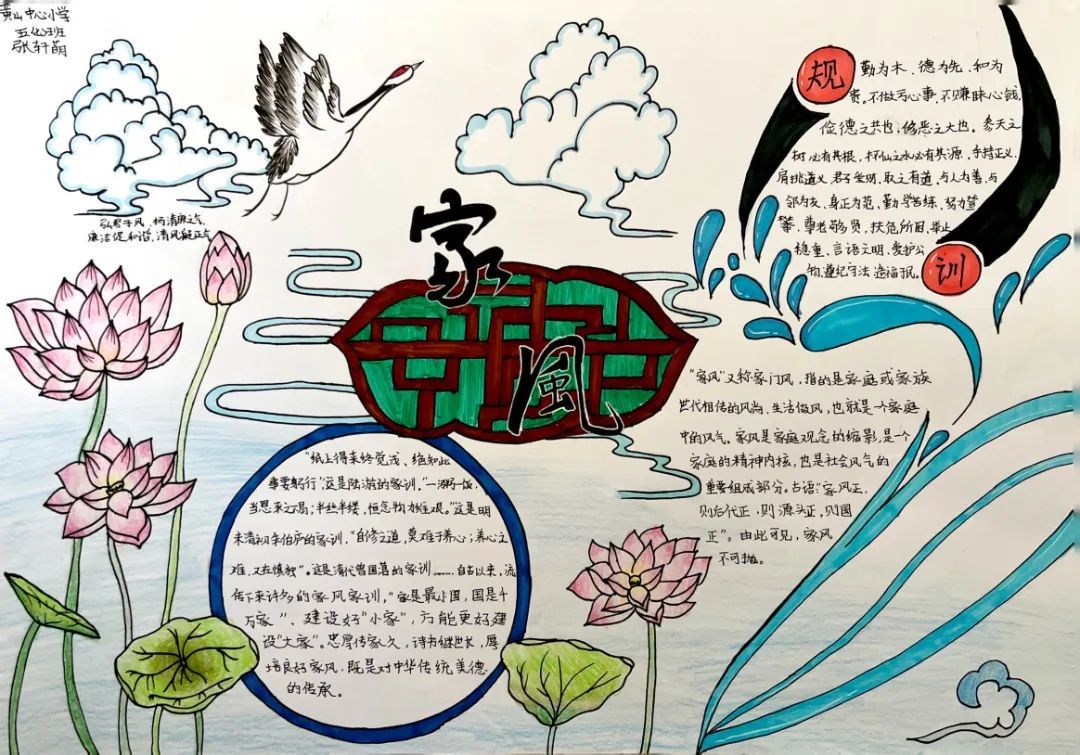 黄山中心小学
五(2)班
张轩萌
弘君子风,扬清廉之气
廉洁促和谐,清风凝正气
家
風
规
勤为本、德为先、和为
贵。不做亏心事,不赚昧心钱,
俭德之共也,侈恶之大也。参天之
树必有其根,怀山之水必有其源,手持正义,
肩挑道义,君子爱财,取之有道,与人为善,与
邻为友,身正为范,勤学苦练,努力
攀,尊老敬贤,扶危所困,举止
稳重、言语文明,爱护公
物,遵纪守法,造福于民。
训
“家风”又称家门风,指的是家庭或家族
世代相传的风尚、生活做风,也就是一个家庭
中的风气。家风是家庭观念的缩影,是一个
家庭的精神内核,也是社会风气的
重要组成部分。古语“家风正,
则后代正,则源头正,则国
正”。由此可见,家风
不可抛。
“纸上得来终觉浅、绝知此
事要躬行”,这是陆游的家训。“一粥一饭,
当思来之不易;半丝半缕,恒念物力维艰。”这是明
末清初朱伯庐的家训,“自修之道,莫难于养心;养心之
难,又在慎独”。这是清代曾国藩的家训……自古以来,流
传下来许多的家风家训,“家是最小国,国是千
万家”、建设好“小家”,方能更好建
设“大家”。忠厚传家久,诗书继世长,厚
培良好家风,既是对中华传统美德
的传承。